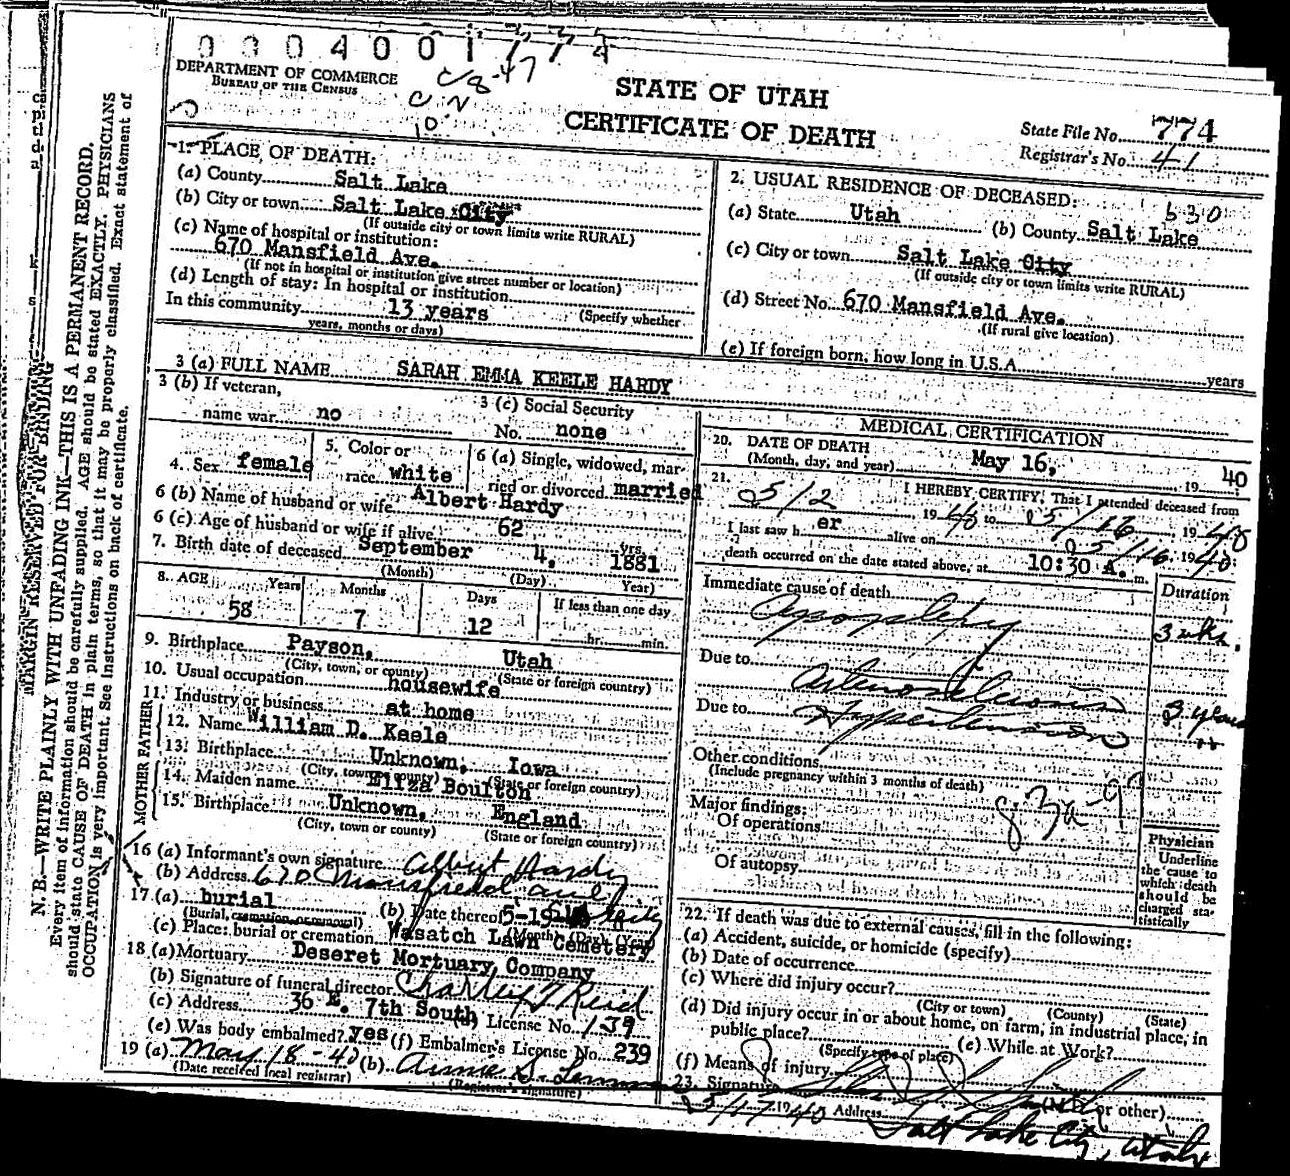 0004001774
DEPARTMENT OF COMMERCE
BUREAU OF THE CENSUS
STATE OF UTAH
CERTIFICATE OF DEATH
State File No. 774
Registrar's No. 41
MARGIN RESERVED FOR BINDING
N. B.—WRITE PLAINLY WITH UNFADING INK—THIS IS A PERMANENT RECORD.
Every item of information should be carefully supplied. AGE should be stated EXACTLY. PHYSICIANS
should state CAUSE OF DEATH in plain terms, so that it may be properly classified. Exact statement of
OCCUPATION is very important. See instructions on back of certificate.
1. PLACE OF DEATH:
(a) County Salt Lake
(b) City or town Salt Lake City
(If outside city or town limits write RURAL)
(c) Name of hospital or institution:
670 Mansfield Ave.
(If not in hospital or institution give street number or location)
(d) Length of stay: In hospital or institution
In this community 13 years (Specify whether
years, months or days)
2. USUAL RESIDENCE OF DECEASED: 630
(a) State Utah (b) County Salt Lake
(c) City or town Salt Lake City
(If outside city or town limits write RURAL)
(d) Street No. 670 Mansfield Ave.
(If rural give location)
(e) If foreign born, how long in U.S.A. years
3 (a) FULL NAME SARAH EMMA KEELE HARDY
3 (b) If veteran,
name war no
3 (c) Social Security
No. none
4. Sex female
5. Color or
race white
6 (a) Single, widowed, mar-
ried or divorced married
6 (b) Name of husband or wife Albert Hardy
6 (c) Age of husband or wife if alive 62 yrs.
7. Birth date of deceased September 4, 1881
(Month) (Day) Year)
8. AGE Years Months Days If less than one day
58 7 12 hr. min.
9. Birthplace Payson, Utah
(City, town, or county) (State or foreign country)
10. Usual occupation housewife
11. Industry or business at home
FATHER
12. Name William D. Keele
13. Birthplace Unknown, Iowa
(City, town or county) (State or foreign country)
MOTHER
14. Maiden name Eliza Boulton
15. Birthplace Unknown, England
(City, town or county) (State or foreign country)
16 (a) Informant's own signature Albert Hardy
(b) Address 670 Mansfield ave
17 (a) burial (b) Date thereof 5-19
(Burial, cremation or removal) (Month) (Day) (Year)
(c) Place: burial or cremation Wasatch Lawn Cemetery
18 (a) Mortuary Deseret Mortuary Company
(b) Signature of funeral director
(c) Address 36 E. 7th South (d) License No. 139
(e) Was body embalmed? yes (f) Embalmer's License No. 239
19 (a) May 18-40 (b) Annie S.
(Date received local registrar) (Registrar's signature)
MEDICAL CERTIFICATION
20. DATE OF DEATH
(Month, day, and year) May 16, 1940
21. I HEREBY CERTIFY, That I attended deceased from
5/2 1940 to 5/16 1940
I last saw her alive on 5/16 1940
death occurred on the date stated above, at 10:30 A. m.
Immediate cause of death Duration
Apoplexy 3 wks.
Due to Arteriosclerosis 3 years
Due to Hypertension "
Other conditions
(Include pregnancy within 3 months of death)
Major findings:
Of operations
Of autopsy
Physician
Underline
the cause to
which death
should be
charged sta-
tistically
22. If death was due to external causes, fill in the following:
(a) Accident, suicide, or homicide (specify)
(b) Date of occurrence
(c) Where did injury occur?
(City or town) (County) (State)
(d) Did injury occur in or about home, on farm, in industrial place, in
public place? (e) While at Work?
(Specify type of place)
(f) Means of injury
23. Signature (M.D. or other)
5/17 1940 Address Salt Lake City, Utah